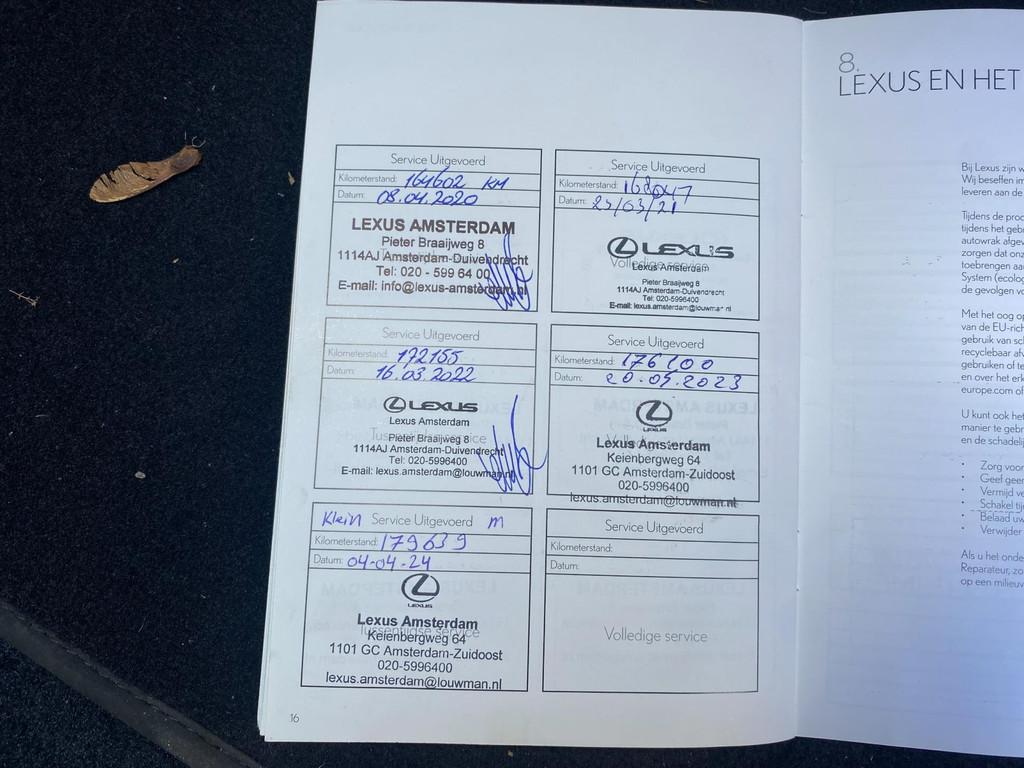 Service Uitgevoerd
Kilometerstand: 164602 KM
Datum: 08.04.2020
LEXUS AMSTERDAM
Pieter Braaijweg 8
1114AJ Amsterdam-Duivendrecht
Tel: 020 - 599 64 00
E-mail: info@lexus-amsterdam.nl
Service Uitgevoerd
Kilometerstand: 168047
Datum: 25/03/21
LEXUS
Volledige service
Lexus Amsterdam
Pieter Braaijweg 8
1114AJ Amsterdam-Duivendrecht
Tel: 020-5996400
E-mail: lexus.amsterdam@louwman.nl
Service Uitgevoerd
Kilometerstand: 172155
Datum: 16.03.2022
LEXUS
Lexus Amsterdam
Tussentijdse service
Pieter Braaijweg 8
1114AJ Amsterdam-Duivendrecht
Tel: 020-5996400
E-mail: lexus.amsterdam@louwman.nl
Service Uitgevoerd
Kilometerstand: 176100
Datum: 20.05.2023
LEXUS
Lexus Amsterdam
Volledige service
Keienbergweg 64
1101 GC Amsterdam-Zuidoost
020-5996400
lexus.amsterdam@louwman.nl
Klein Service Uitgevoerd m
Kilometerstand: 179639
Datum: 04-04-24
LEXUS
Lexus Amsterdam
Tussentijdse service
Keienbergweg 64
1101 GC Amsterdam-Zuidoost
020-5996400
lexus.amsterdam@louwman.nl
Service Uitgevoerd
Kilometerstand:
Datum:
Volledige service
16
8.
LEXUS EN HET
Bij Lexus zijn
Wij beseffen
leveren aan de
Tijdens de
tijdens het
autowrak
zorgen dat
toebrengen
System
de gevolgen
Met het oog
van de
gebruik van
recyclebaar
gebruiken of
en over het
europe.com
U kunt ook het
manier te
en de
• Zorg
• Geef
• Vermijd
• Schakel
• Belaad
• Verwijder
Als u het
Reparateur,
op een